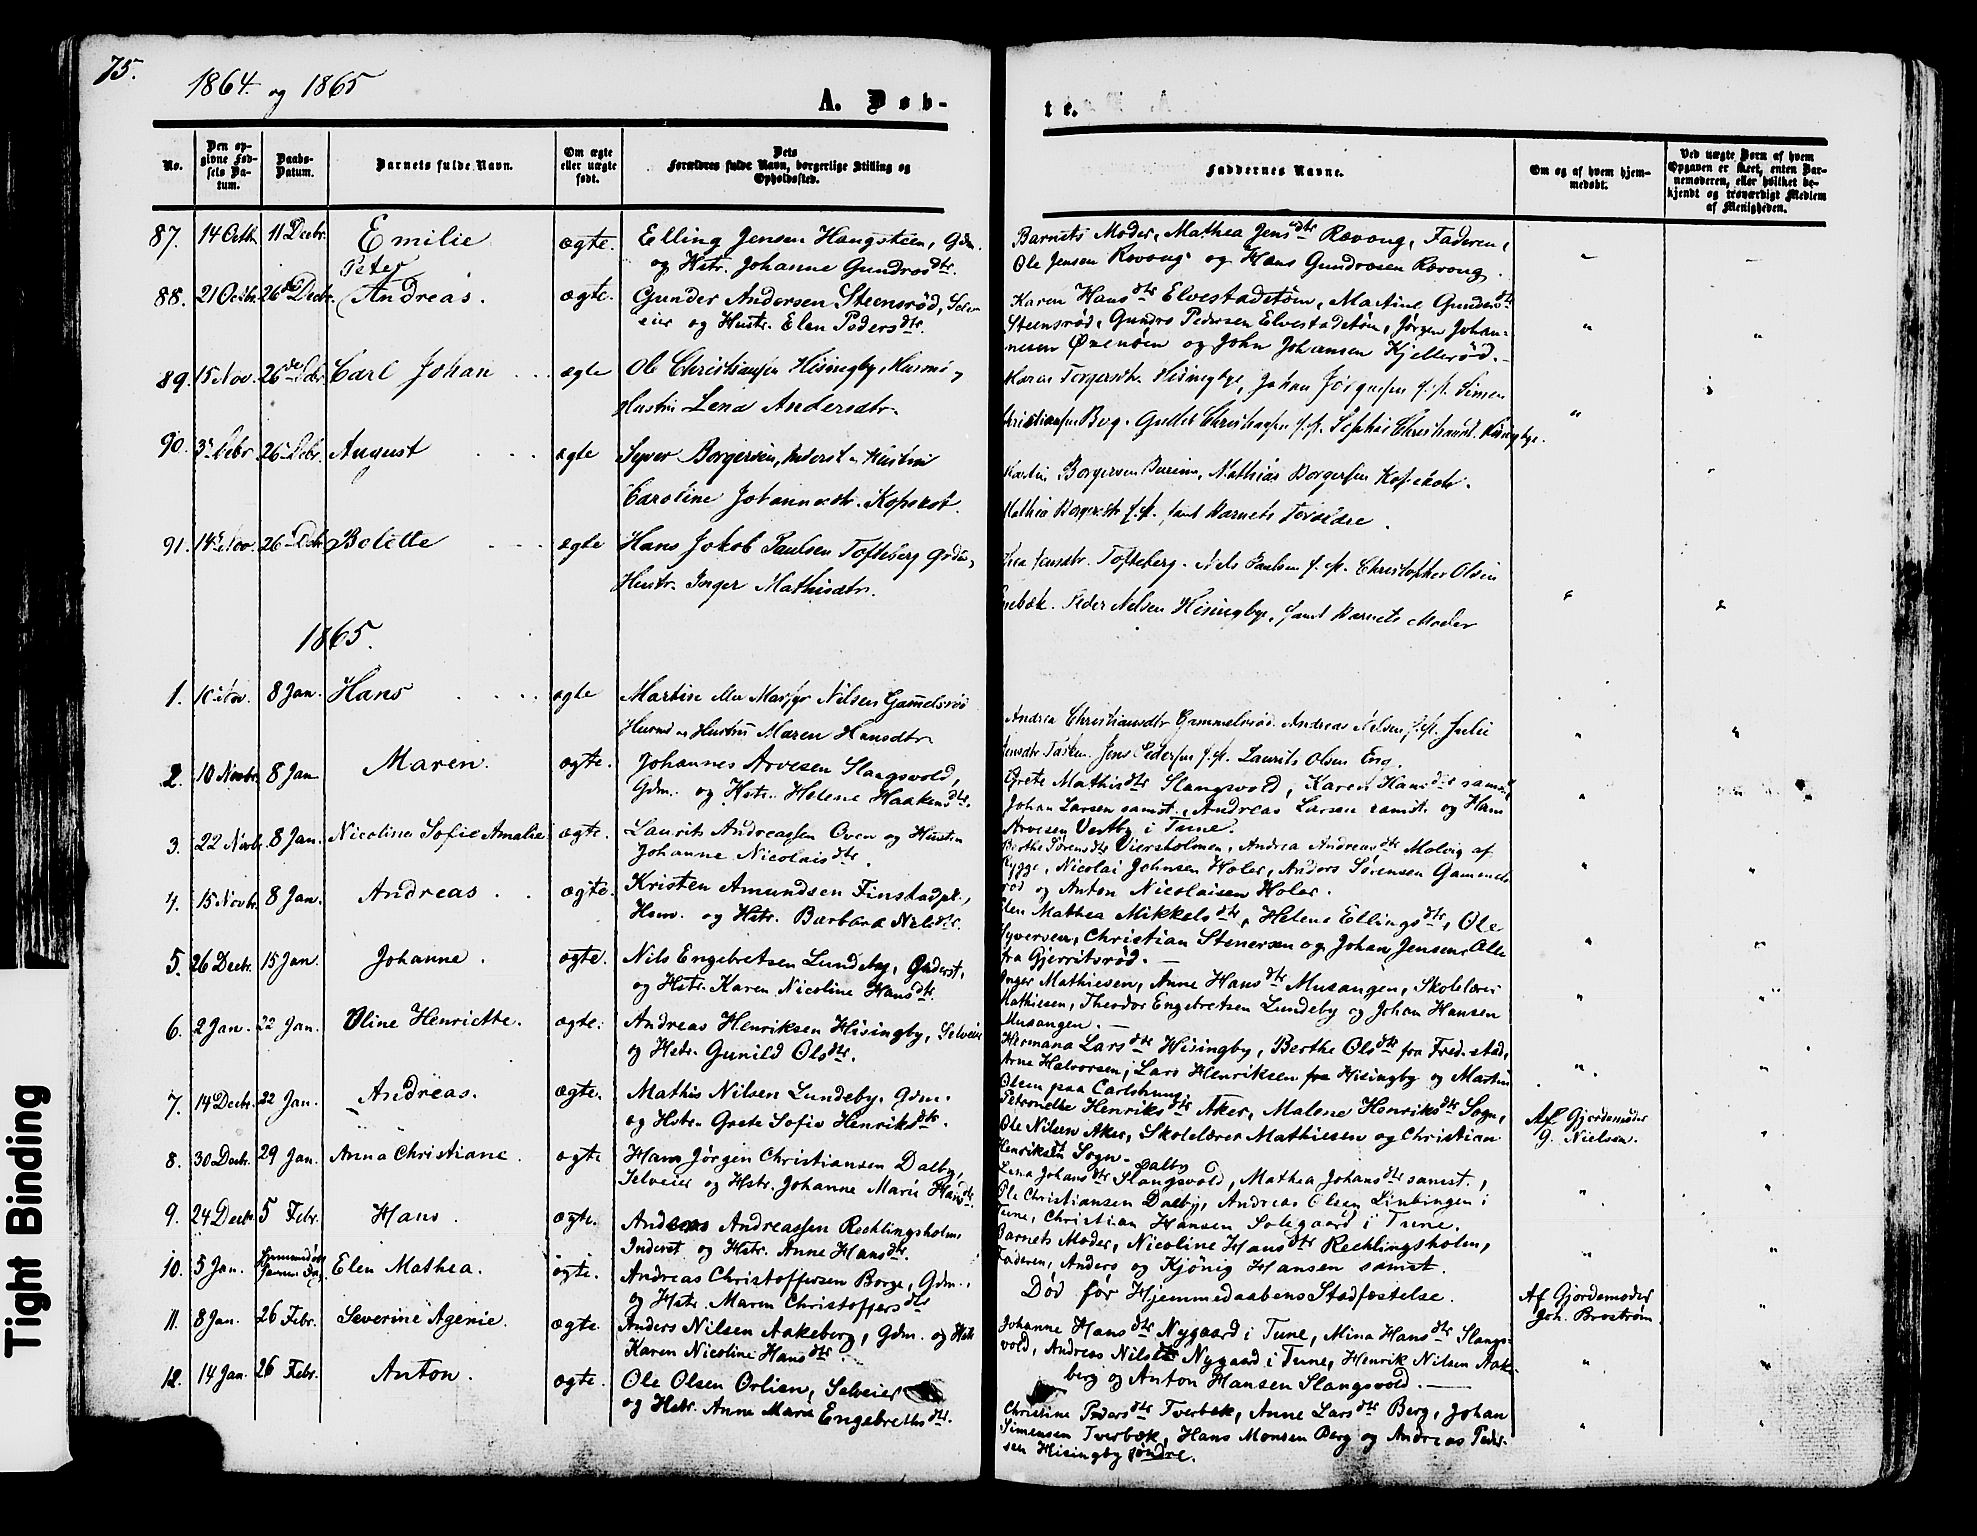 75.
1864 og 1865
A. Døb-
te.
No.
Den op-
givne Fød-
sels Da-
tum.
Daabs-
Datum.
Barnets fulde Navn.
Om ægte
eller uægte
født.
Dets
Forældres fulde Navn, borgerlige Stilling og
Opholdssted.
Faddernes Navne.
Om og af hvem hjem-
medøbt.
Ved uægte Born af hvem
Opgaven er skeet, enten Bar-
nemoderen, eller hvilket be-
kjendt og troværdigt Medlem
af Menigheden.
87. 14 Octb. 11 Decbr. Emilie ægte. Elling Jensen Haugsteen, Gdm.
og Hstr. Johanne Gundrosdtr.
Barnets Moder, Mathea Jensdtr Ravoug, Faderen,
Ole Jensen Rovoug og Hans Gundrosen Rovoug.
Peter
88. 21 Octbr. 26 Decbr. Andreas. ægte. Gunder Andersen Steensrød, Selv-
eier og Hustr. Elen Pedersdtr.
Karen Hansdtr Elvestadstøm, Martine Gundersdtr
Steensrød, Gundro Pedersen Elvestadstøm, Jørgen Johan-
nesen Øxenøen og John Johansen Kjellerød.
89. 15 Nov. 26 Decbr Carl Johan ægte Ole Christiansen Hisingby, Husm. og
Hustru Lena Andersdtr.
Maren Torgersdtr. Hisingby, Johan Jørgensen s.st. Simen
Christiansen Berg. Gulbr. Christiansen s.st. Sophie Christiansd. Hisingby.
90. 3 Decbr 26 Decbr. August ægte Syver Borgersen, Inderst og Hustru
Caroline Johannesdtr. Kopskot.
Borgersen Mathias Borgersen Kopskot.
Mathea Borgersdtr s.st. samt Barnets Forældre.
91. 14 Nov. 26 Decbr Bolette ægte Hans Jokob Paulsen Tofteberg Grdm,
Hustr. Inger Mathisdtr.
Thea Jensdtr. Tofteberg. Nels Paulsen s.st. Christopher Olsen
Enebæk. Peder Nelsen Hisingbye, samt Barnets Moder
1865.
1. 10 Nov. 8 Jan. Hans ægte Martin Nilsen Gamelsrød
Husmd og Hustru Maren Hansdtr.
Andrea Christiansdtr Gammelsrød. Andreas Nelsen s.st. Julie
Jensdtr Jens Pedersen s.st. Laurits Olsen Eng.
2. 10 Novbr. 8 Jan Maren. ægte. Johannes Arvesen Slangsvold,
Gdm. og Hstr. Helene Haakensdtr.
Grete Mathisdtr Slangsvold, Karen Hansdtr samst.
Johan Larsen samst., Andreas Larsen samst. og Hans
Arvesen Vestby i Tune.
3. 22 Novbr. 8 Jan. Nicoline Sofie Amalie ægte. Laurits Andreassen Oven og Hustru
Johanne Nicolaisdtr.
Berthe Sørensdtr Viersholmen, Andrea Andreasdtr Molvig af
Rygge, Nicolai Johnsen Holer, Anders Sørensen Gammels-
rød og Anton Nicolaisen Holer.
4. 15 Novbr. 8 Jan. Andreas. ægte. Kristen Amundsen Finstadpl.,
Hsm. og Hstr. Barbara Nilsdtr.
Elen Mathea Mikkelsdtr, Helene Ellingsdtr, Ole
Syversen, Christian Stenersen og Johan Jensen, Alle
fra Gjerritsrød.
5. 26 Decbr. 15 Jan. Johanne. ægte. Nils Engebretsen Lundeby, Inderst,
og Hstr. Karen Nicoline Hansdtr.
Inger Mathiesen, Anne Hansdtr Musangen, Skolelærer
Mathiesen, Theodor Engebretsen Lundeby og Johan Hansen
Musangen.
6. 2 Jan. 22 Jan. Oline Henriette. ægte. Andreas Henriksen Hisingby, Selveier
og Hstr. Gunild Olsdtr.
Hermana Larsdtr Hisingby, Berthe Olsdtr fra Fred.stad,
Arne Halvorsen, Lars Henriksen fra Hisingby og Martin
Olsen paa Carlshuus.
7. 14 Decbr. 22 Jan. Andreas. ægte. Mathis Nilsen Lundeby, Gdm.
og Hstr. Grete Sofie Henriksdtr.
Petronelle Henriksdtr Aker, Malene Henriksdtr Sogn,
Ole Nilsen Aker, Skolelærer Mathiesen og Christian
Henriksen Sogn.
Af Gjordemoder
G. Nielsen.
8. 30 Decbr. 29 Jan. Anna Christiane. ægte Hans Jørgen Christiansen Dalby,
Selveier og Hstr. Johanne Marie Hansdtr.
Dalby
Lena Johansdtr Slangsvold, Mathea Johansdtr samst.,
Ole Christiansen Dalby, Andreas Olsen Linbingen i
Tune, Christian Hansen Solegaard i Tune.
9. 24 Decbr. 5 Febr. Hans. ægte. Anders Andreassen Rechlingsholm
Inderst og Hstr. Anne Hansdtr.
Barnets Moder, Nicoline Hansdtr Rechlingsholm,
Faderen, Anders og Kjønig Hansen samst.
10. 5 Jan. Hjemmedøbt
samme Dag Elen Mathea. ægte. Andreas Christoffersen Borge, Gdm.,
og Hstr. Maren Christoffersdtr
Død før Hjemmedaabens Stadfæstelse.
Af Gjordemoder
Joh. Brostrøm.
11. 8 Jan. 26 Febr. Severine Agenie. ægte. Anders Nilsen Aakeberg, Gdm. og Hstr.
Karen Nicoline Hansdtr.
Johanne Hansdtr Nygaard i Tune, Mina Hansdtr Slangs-
vold, Andreas Nilsen Nygaard i Tune, Henrik Nilsen Aake-
berg og Anton Hansen Slangsvold.
12. 14 Jan. 26 Febr. Anton. ægte. Ole Olsen Orlien, Selveier
og Hstr. Anne Marie Engebretsdtr.
Christine Pedersdtr Tverbæk, Anne Larsdtr Berg, Johan
Simensen Tverbæk, Hans Monsen Berg og Andreas Peder-
sen Hisingby søndre.
Tight Binding